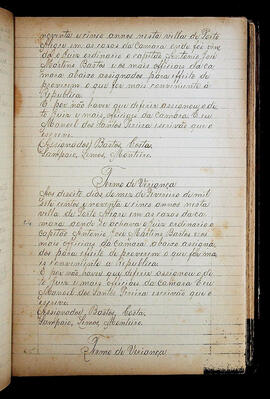 noventa e cinco annos nesta villa de Porto
Alegre em as casas da Camara onde foi vin
do o Juiz ordinario o capitão Antonio José
Martins Bastos e os mais officiaes da ca
mara abaixo assignados para effeito de
proverem o que for mais conveniente á
Republica.
E por não haver que deferir assignou o di
to Juiz e mais officiaes da Camara. E eu
Manoel dos Santos Pereira escrivão que o
escrevi.
(Assignados) Bastos, Costa,
Sampaio, Lemos, Monteiro.
Termo de Vereança
Aos dezete dias do mez de Fevereiro de mil
sete centos e noventa e cinco annos nesta
villa de Porto Alegre em as casas da ca
mara aonde se achava o Juiz ordinario o
capitão Antonio José Martins Bastos e os
mais officiaes da Camara abaixo assigna
dos para effeito de proverem o que for ma
is conveniente a republica.
E por não haver que deferir assignou o di
to Juiz e mais officiaes da Camara E eu
Manoel dos Santos Pereira escrivão que o
escrevi.
(Assignados) Bastos, Costa,
Sampaio, Lemos, Monteiro.
Termo de Vereança